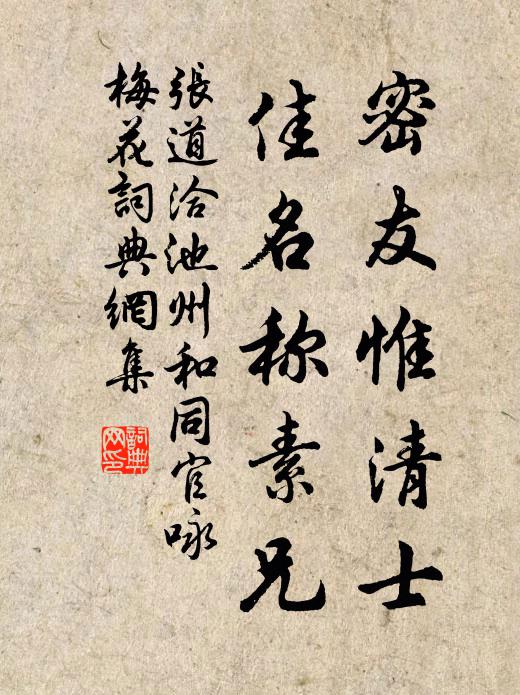 密友惟清士
佳名称素兄
張道洽池州和同官咏
梅花詞典網集
詞典网印